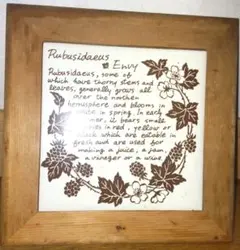 Rubusidaeus
Envy
Rubusidaeus, some of
which have thorny stems and
leaves, generally grows all
over the northen
hemisphere and blooms in
in spring. In each
it bears small
in red, yellow or
which are eatable in
fresh and are used for
making a juice, a jam,
a vinegar or a wine.